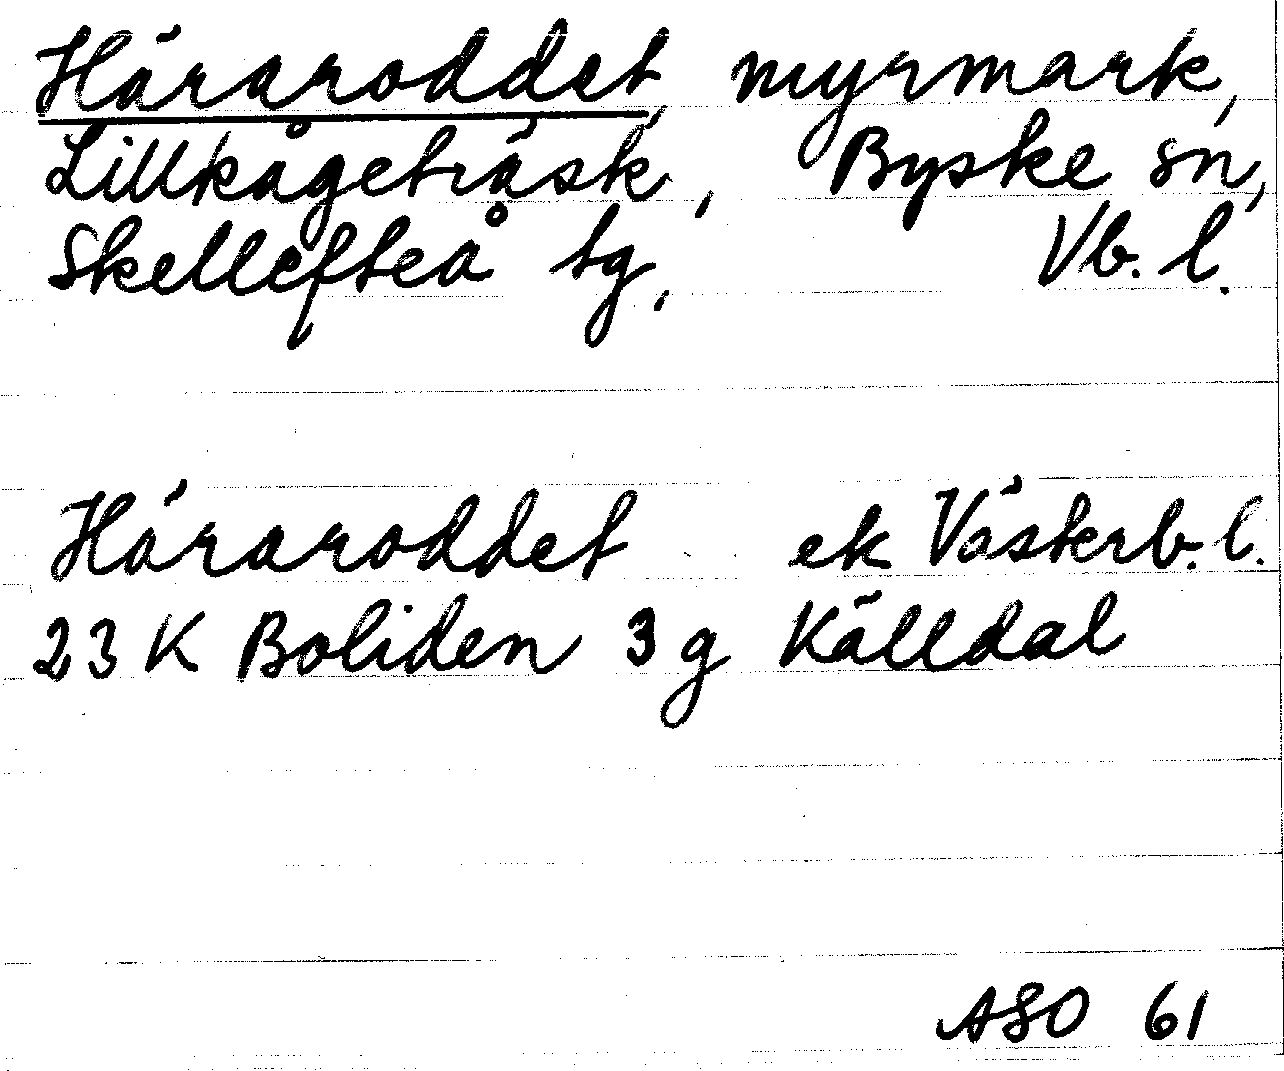 Häraroddet, myrmark,
Lillkågeträsk, Byske sn,
Skellefteå tg, Vb. l.
Häraroddet ek Västerb. l.
23 K Boliden 3 g Källdal
ASO 61